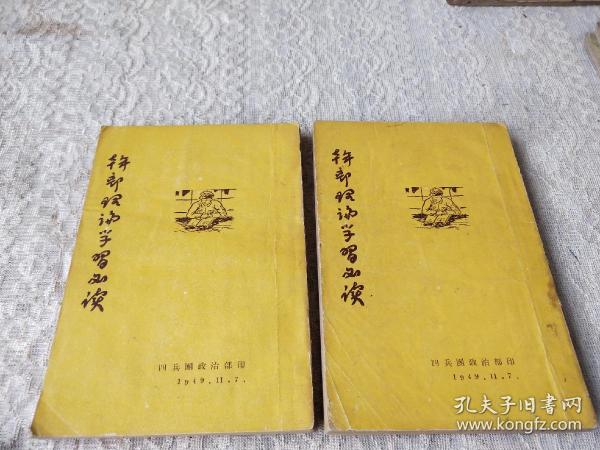 幹部理論学習必读
四兵團政治部印
1949.11.7.
幹部理論学習必读
四兵團政治部印
1949.11.7.
孔夫子旧書网
www.kongfz.com